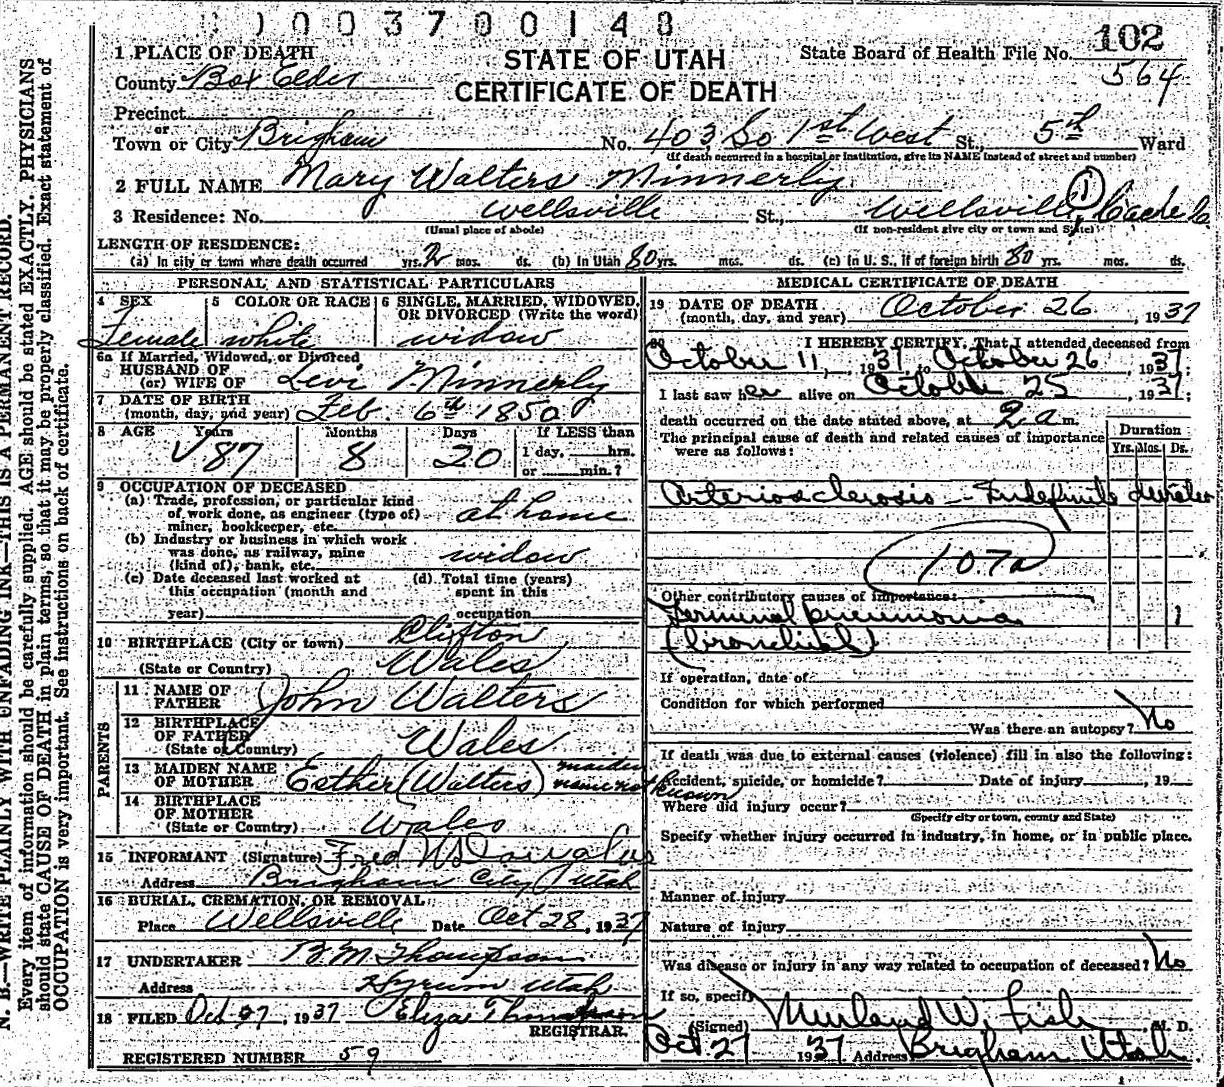 0 0 3 7 0 0 1 4 8
1 PLACE OF DEATH
STATE OF UTAH
CERTIFICATE OF DEATH
State Board of Health File No. 102
564
County Box Elder
Precinct
or
Town or City Brigham No. 403 So 1st West St., 5th Ward
(If death occurred in a hospital or institution, give its NAME instead of street and number)
2 FULL NAME Mary Walters Minnerly
1
3 Residence: No. Wellsville St., Wellsville, Cache Co
(Usual place of abode) (If non-resident give city or town and State)
LENGTH OF RESIDENCE:
(a) In city or town where death occurred yrs. 2 mos. ds. (b) In Utah 80 yrs. mos. ds. (c) In U. S., if of foreign birth 80 yrs. mos. ds.
PERSONAL AND STATISTICAL PARTICULARS
4 SEX
Female
5 COLOR OR RACE
white
6 SINGLE, MARRIED, WIDOWED, OR DIVORCED (Write the word)
widow
6a If Married, Widowed, or Divorced
HUSBAND OF
(or) WIFE OF Levi Minnerly
7 DATE OF BIRTH
(month, day, and year) Feb. 6th 1850
8 AGE Years Months Days If LESS than
87 8 20 1 day, hrs.
or min.?
9 OCCUPATION OF DECEASED
(a) Trade, profession, or particular kind
of work done, as engineer (type of)
miner, bookkeeper, etc. at home
(b) Industry or business in which work
was done, as railway, mine
(kind of), bank, etc. widow
(c) Date deceased last worked at
this occupation (month and
year)
(d) Total time (years)
spent in this
occupation
10 BIRTHPLACE (City or town) Clifton
(State or Country) Wales
PARENTS
11 NAME OF
FATHER John Walters
12 BIRTHPLACE
OF FATHER
(State or Country) Wales
13 MAIDEN NAME
OF MOTHER Esther (Walters) maiden name not known
14 BIRTHPLACE
OF MOTHER
(State or Country) Wales
15 INFORMANT (Signature) Fred W Douglas
Address Brigham City Utah
16 BURIAL, CREMATION, OR REMOVAL
Place Wellsville Date Oct 28, 1937
17 UNDERTAKER B. M. Thompson
Address Hyrum Utah
18 FILED Oct 27, 1937 Eliza
REGISTRAR.
REGISTERED NUMBER 59
MEDICAL CERTIFICATE OF DEATH
19 DATE OF DEATH
(month, day, and year) October 26, 1937
20 I HEREBY CERTIFY, That I attended deceased from
October 11, 1937, to October 26, 1937;
I last saw her alive on October 25, 1937;
death occurred on the date stated above, at 2 a m.
The principal cause of death and related causes of importance
were as follows:
Duration
Yrs. Mos. Ds.
Arteriosclerosis - Indefinite
107a
Other contributory causes of importance:
Terminal pneumonia 1
(bronchial)
If operation, date of
Condition for which performed
Was there an autopsy? No
If death was due to external causes (violence) fill in also the following:
Accident, suicide, or homicide? Date of injury, 19
Where did injury occur?
(Specify city or town, county and State)
Specify whether injury occurred in industry, in home, or in public place.
Manner of injury
Nature of injury
Was disease or injury in any way related to occupation of deceased? No
If so, specify
(Signed) Merland W. Fish M. D.
Oct 27 1937 Address Brigham Utah
N. B.—WRITE PLAINLY WITH UNFADING INK—THIS IS A PERMANENT RECORD.
Every item of information should be carefully supplied. AGE should be stated EXACTLY. PHYSICIANS
should state CAUSE OF DEATH in plain terms, so that it may be properly classified. Exact statement of
OCCUPATION is very important. See instructions on back of certificate.